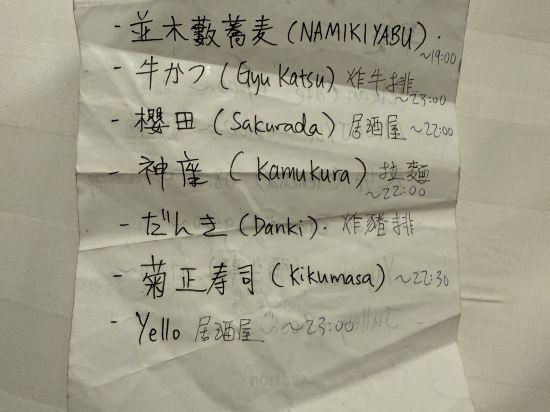 - 並木藪蕎麦 (NAMIKIYABU).
~19:00
- 牛かつ (Gyu Katsu) 炸牛排
~23:00
- 櫻田 (Sakurada) 居酒屋 ~22:00
- 神座 (Kamukura) 拉麵
~22:00
- だんき (Danki). 炸豬排
- 菊正寿司 (Kikumasa) ~22:30
- Yello 居酒屋 ~23:00